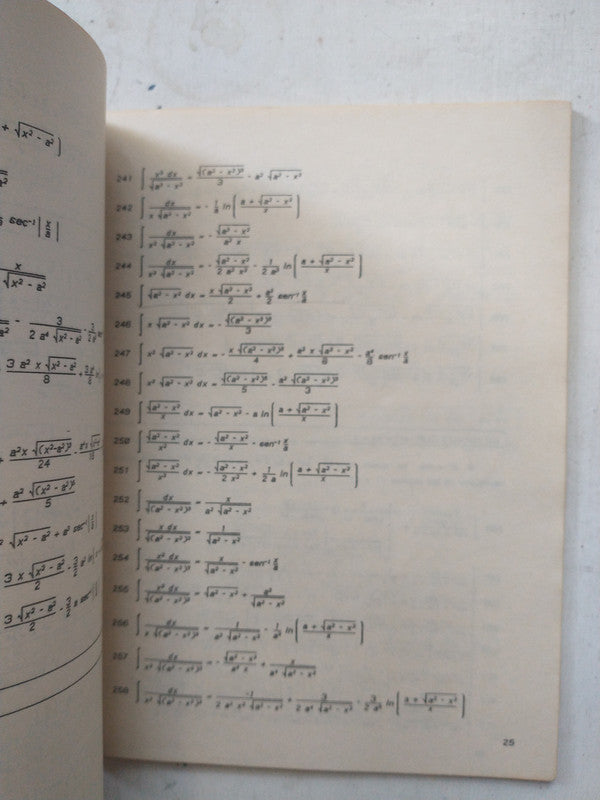 + √(x² - a²)
x / √(x² - a²)
3 a² x √(x² - a²) / 8
a²x √(x²-a²)³ / 24
+ a² √(x² - a²)⁵ / 5
3 x √(x² - a²) / 2
3 √(x² - a²) / 2
241 ∫ x³ dx / √(a² - x²) = √(a² - x²)³ / 3 - a² √(a² - x²)
242 ∫ dx / x √(a² - x²) = - 1/a ln ( a + √(a² - x²) / x )
243 ∫ dx / x² √(a² - x²) = - √(a² - x²) / a² x
244 ∫ dx / x³ √(a² - x²) = - √(a² - x²) / 2 a² x² - 1 / 2 a³ ln ( a + √(a² - x²) / x )
245 ∫ √(a² - x²) dx = x √(a² - x²) / 2 + a²/2 sen⁻¹ x/a
246 ∫ x √(a² - x²) dx = - √(a² - x²)³ / 3
247 ∫ x² √(a² - x²) dx = - x √(a² - x²)³ / 4 + a² x √(a² - x²) / 8 - a⁴/8 sen⁻¹ x/a
248 ∫ x³ √(a² - x²) dx = √(a² - x²)⁵ / 5 - a² √(a² - x²)³ / 3
249 ∫ √(a² - x²) / x dx = √(a² - x²) - a ln ( a + √(a² - x²) / x )
250 ∫ √(a² - x²) / x² dx = - √(a² - x²) / x - sen⁻¹ x/a
251 ∫ √(a² - x²) / x³ dx = - √(a² - x²) / 2 x² + 1 / 2 a ln ( a + √(a² - x²) / x )
252 ∫ dx / √(a² - x²)³ = x / a² √(a² - x²)
253 ∫ x dx / √(a² - x²)³ = 1 / √(a² - x²)
254 ∫ x² dx / √(a² - x²)³ = x / √(a² - x²) - sen⁻¹ x/a
255 ∫ x³ dx / √(a² - x²)³ = √(a² - x²) + a² / √(a² - x²)
256 ∫ dx / x √(a² - x²)³ = 1 / a² √(a² - x²) - 1/a³ ln ( a + √(a² - x²) / x )
257 ∫ dx / x² √(a² - x²)³ = - √(a² - x²) / a⁴ x + x / a⁴ √(a² - x²)
258 ∫ dx / x³ √(a² - x²)³ = -1 / 2 a² x² √(a² - x²) + 3 / 2 a⁴ √(a² - x²) - 3 / 2 a⁵ ln ( a + √(a² - x²) / x )
25